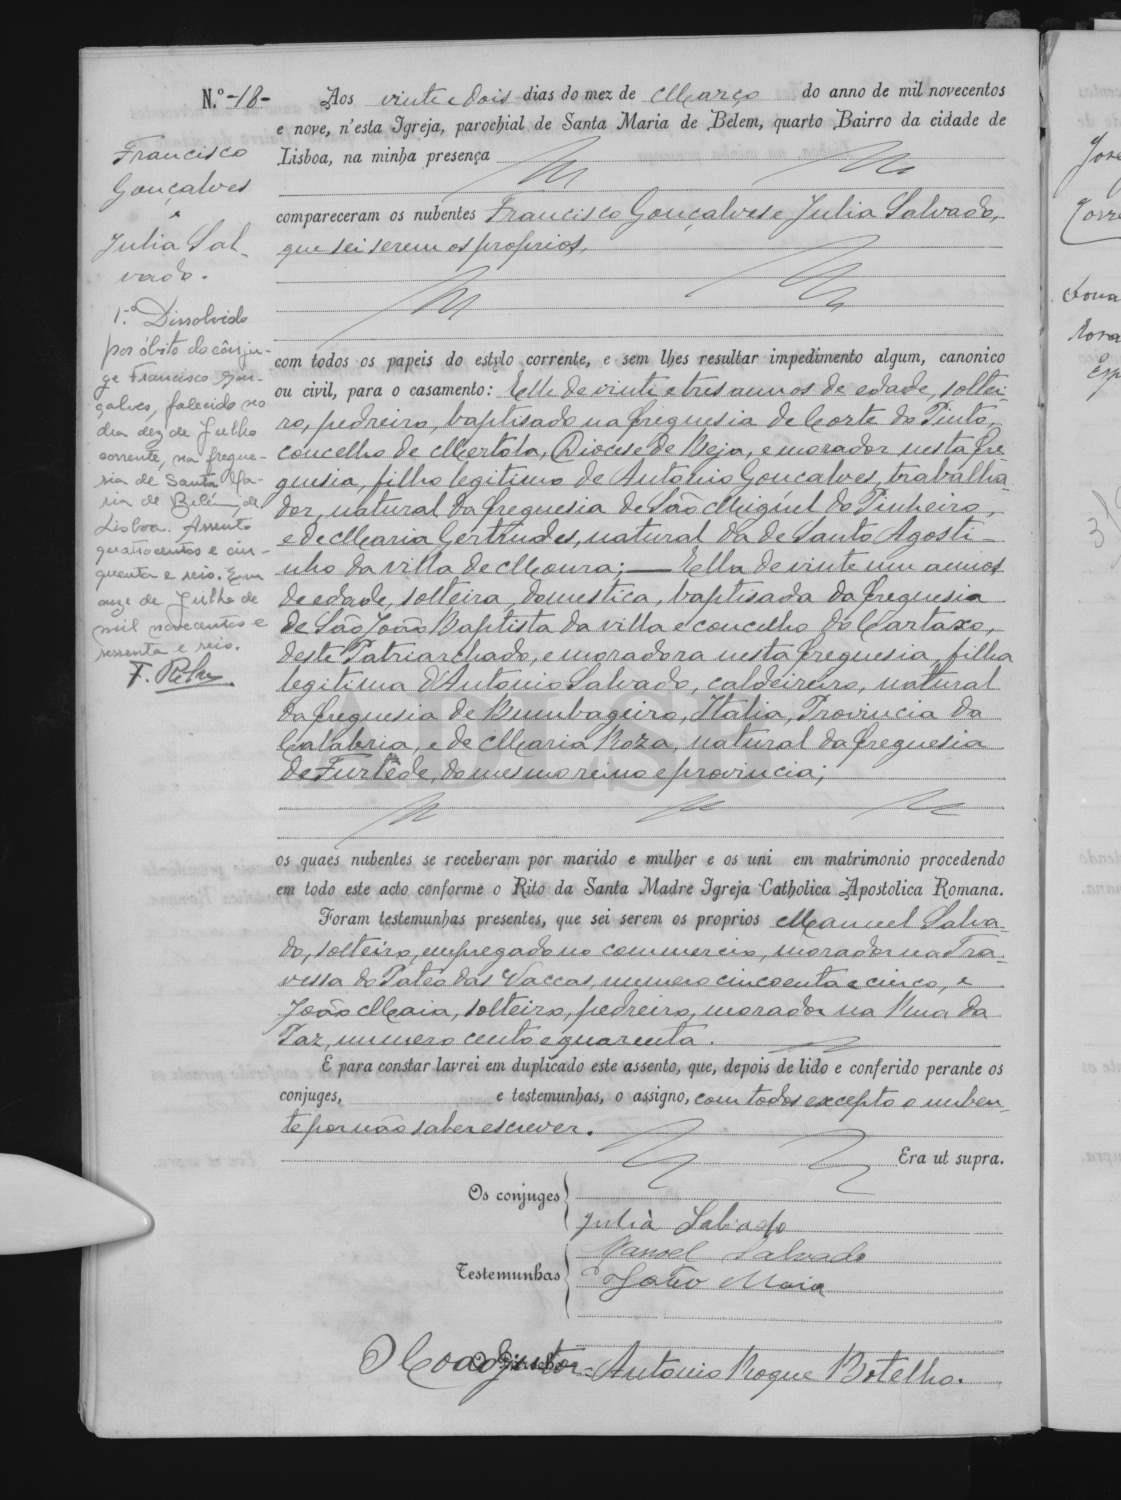 N.º -18-
Francisco
Gonçalves
e
Julia Sal-
vado.
1.º Dissolvido
por óbito do cônju-
ge Francisco Gon-
çalves, falecido no
dia dez de Julho
corrente, na fregue-
sia de Santa Ma-
ria de Belém, de
Lisboa. Assento
quatrocentos e cin-
quenta e seis. Em
onze de Julho de
mil novecentos e
sessenta e seis.
Aos vinte e dois dias do mez de Março do anno de mil novecentos
e nove, n'esta Igreja, parochial de Santa Maria de Belem, quarto Bairro da cidade de
Lisboa, na minha presença
compareceram os nubentes Francisco Gonçalves e Julia Salvado,
que sei serem os proprios,
com todos os papeis do estylo corrente, e sem lhes resultar impedimento algum, canonico
ou civil, para o casamento: Elle de vinte e tres annos de edade, soltei-
ro, pedreiro, baptisado na freguesia de Corte do Pinto,
concelho de Mertola, Diocese de Beja, e morador nesta fre-
guesia, filho legitimo de Antonio Goncalves, trabalha-
dor, natural da freguesia de São Miguel do Pinheiro,
e de Maria Gertrudes, natural da de Santo Agosti-
nho da villa de Moura; — Ella de vinte um annos
de edade, solteira, domestica, baptisada da freguesia
de São João Baptista da villa e concelho do Cartaxo,
deste Patriarchado, e moradora nesta freguesia, filha
legitima d'Antonio Salvado, caldeireiro, natural
da freguesia de Bumbageiro, Italia, Provincia da
Calabria, e de Maria Roza, natural da freguesia
de Furtêde, do mesmo reino e provincia;
os quaes nubentes se receberam por marido e mulher e os uni em matrimonio procedendo
em todo este acto conforme o Rito da Santa Madre Igreja Catholica Apostolica Romana.
Foram testemunhas presentes, que sei serem os proprios Manuel Salva-
do, solteiro, empregado no commercio, morador na Tra-
vessa do Pateo das Vaccas, numero cincoenta e cinco, e
João Maia, solteiro, pedreiro, morador na Rua da
Paz, numero cento e quarenta.
E para constar lavrei em duplicado este assento, que, depois de lido e conferido perante os
conjuges, e testemunhas, o assigno, com todos excepto o nuben-
te por não saber escrever.
Era ut supra.
Os conjuges
Julia Salvado
Manoel Salvado
Testemunhas
João Maia
O Coadjutor = Antonio Roque Botelho.
ADLSB